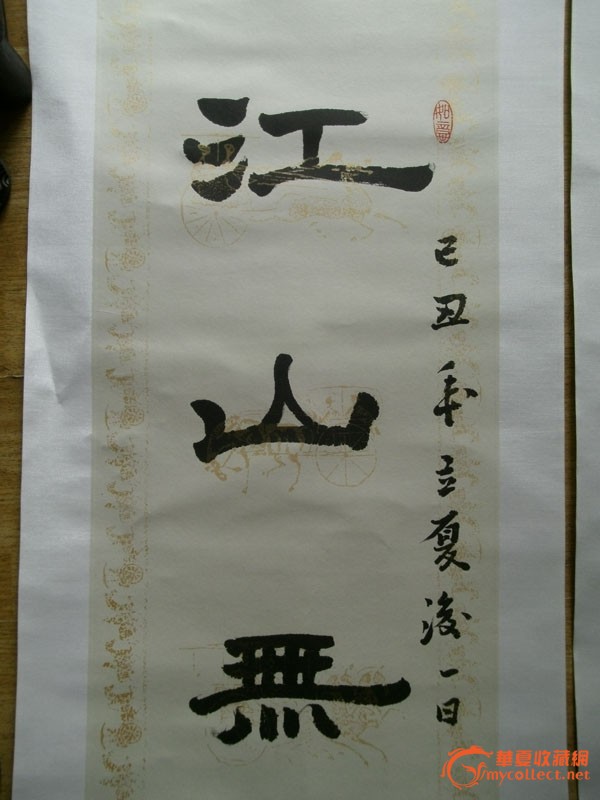 己丑年立夏後一日
江山無
華夏收藏網
mycollect.net